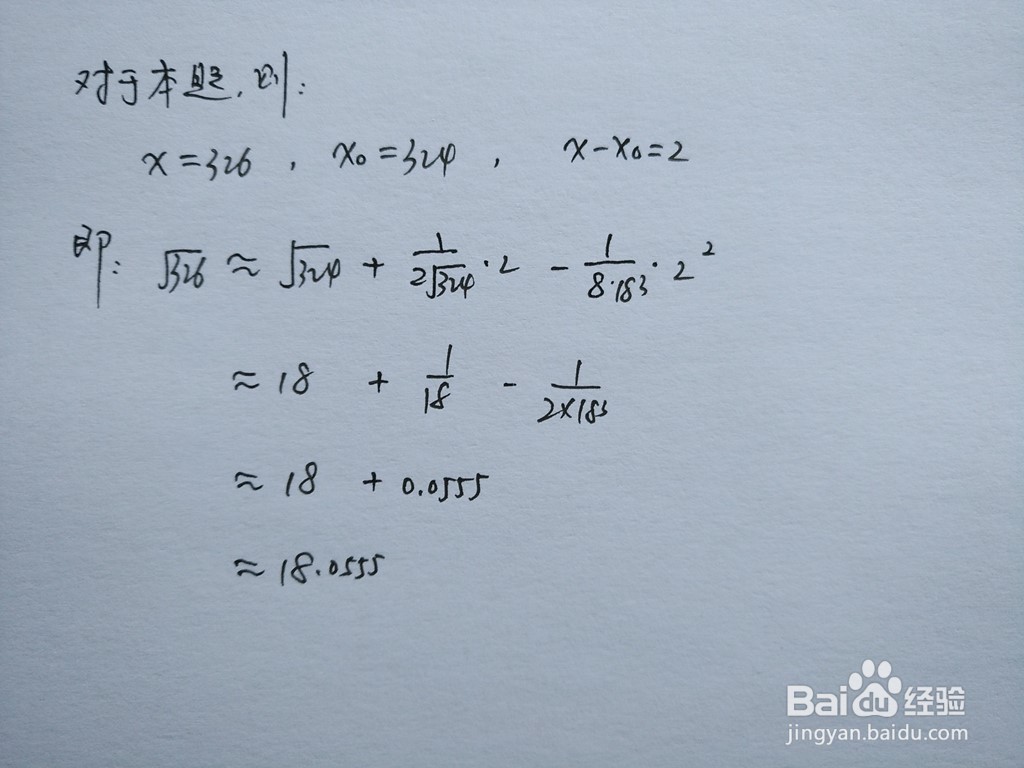 对于本题,则:
x=326, x₀=324, x-x₀=2
即: √326 ≈ √324 + 1/(2√324)·2 - 1/(8·18³)·2²
≈ 18 + 1/18 - 1/(2×18³)
≈ 18 + 0.0555
≈ 18.0555
Bai du 经验
jingyan.baidu.com